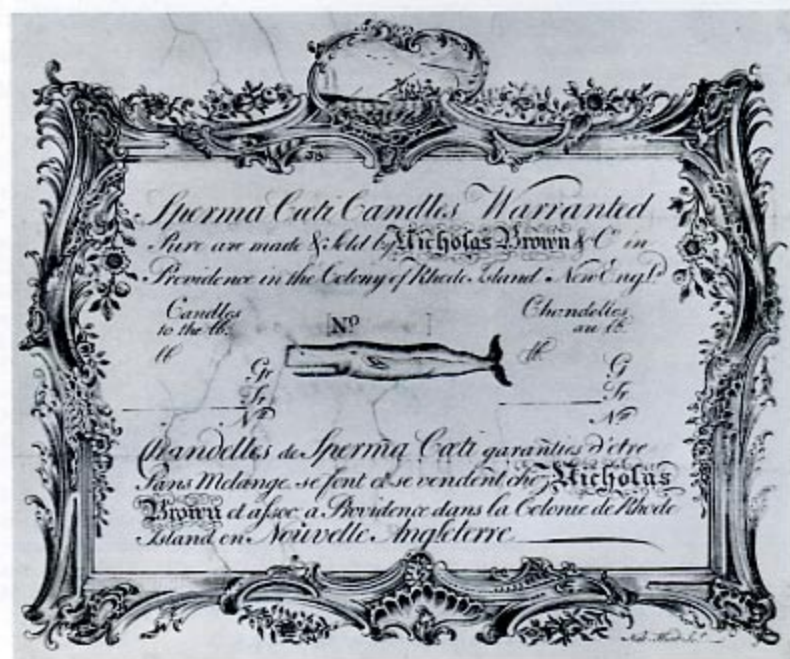 Sperma Cœti Candles Warranted
Pure are made & sold by Nicholas Brown & Co. in
Providence in the Colony of Rhode Island New Engld.
Candles to the lb. No Chandelles au lb.
lb lb.
Gr G
Tr Tr
Nt Nt
Chandelles de Sperma Cœti garanties d'etre
Sans Melange se font et se vendent chez Nicholas
Brown et assoc. a Providence dans la Colonie de Rhode
Island en Nouvelle Angleterre